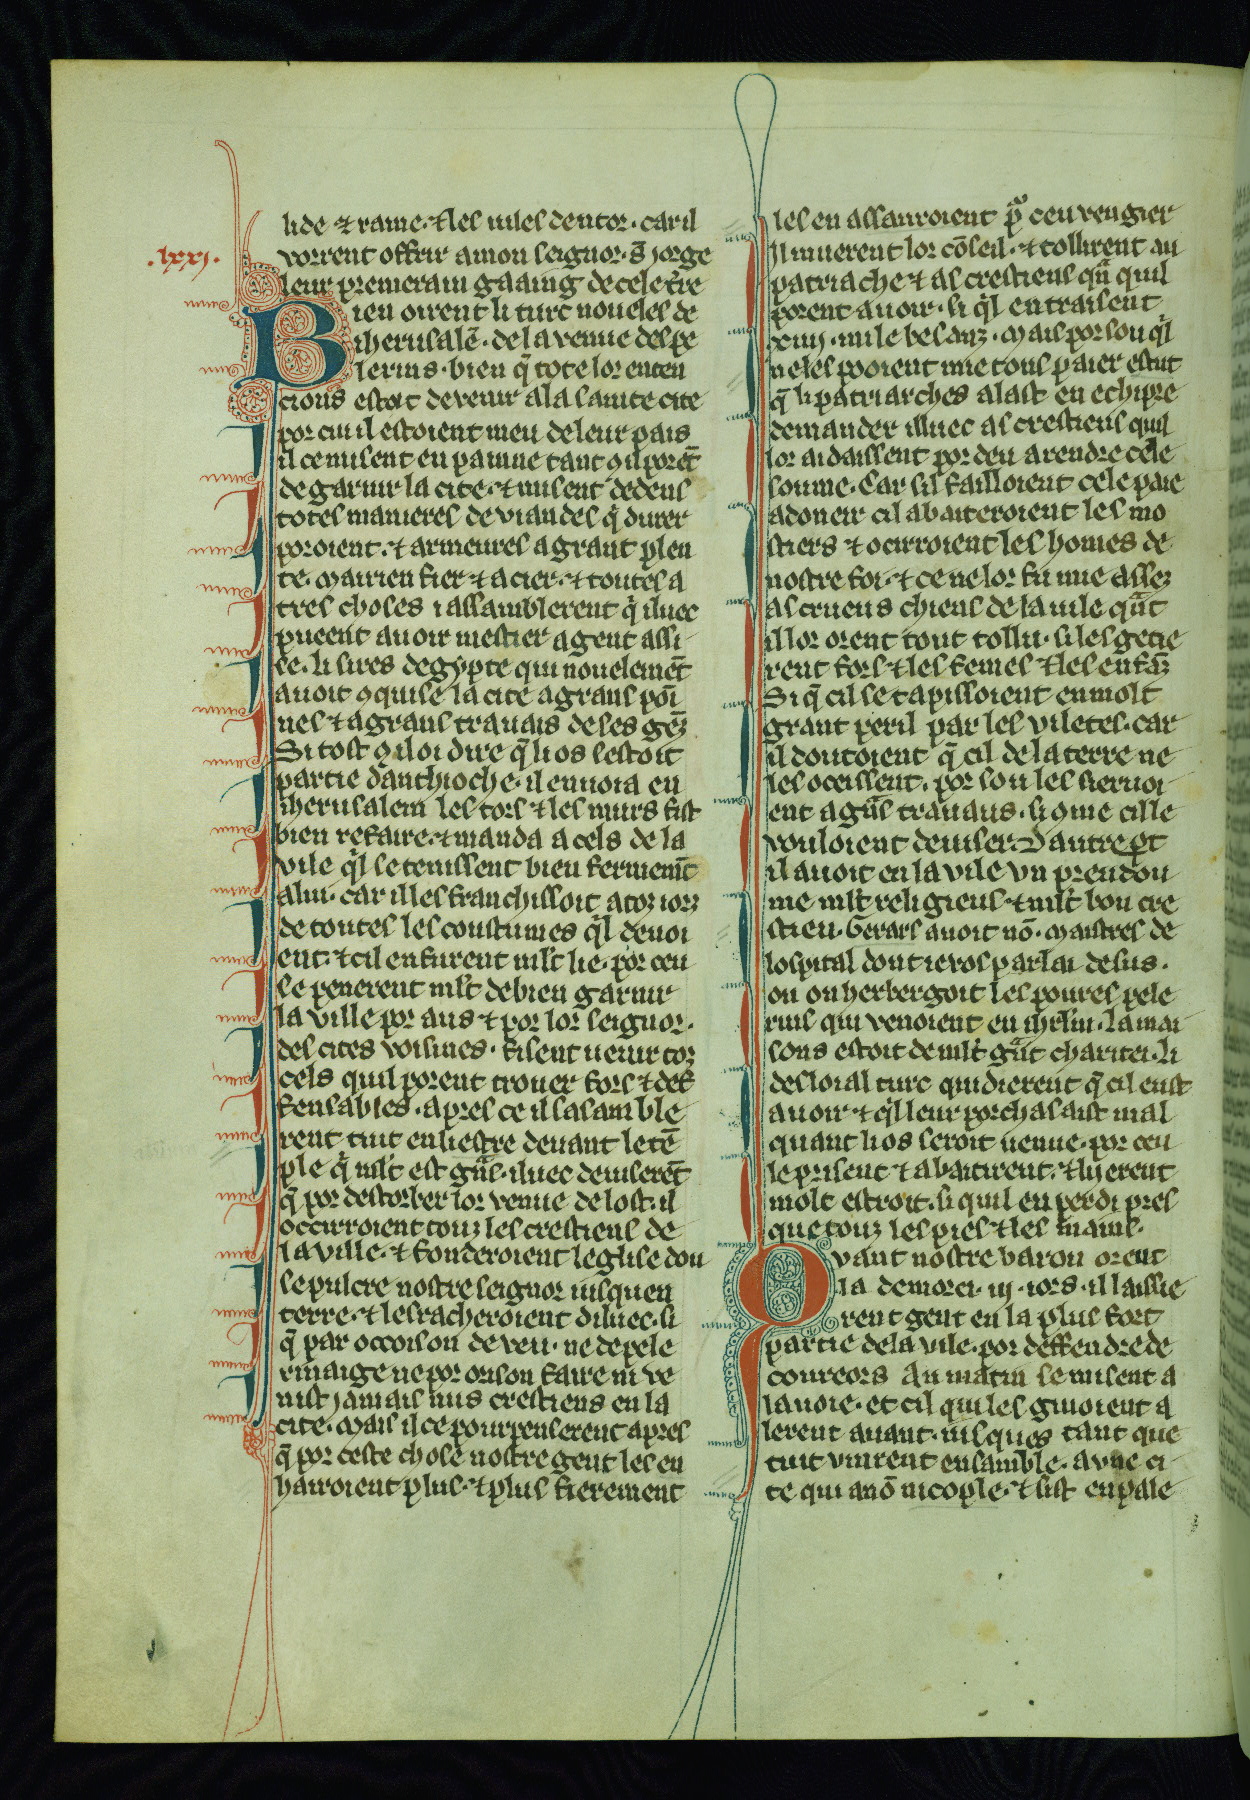 lide ⁊ rame. ⁊ les uiles dentor. car il
.lxxj.
vorrent offrir a mon seignor. s̄ jorge
leur premerain gaaing de cele t̄re
Bien oirent li turc noueles de
iherusalē. de la venue des pe
lerins. bien q̄ tote lor enten
cions estoit de venir a la sainte cite
por cui il estoient meu de leur pais
il ce misent en painne tant ꝯ il porēt
de garnir la cite. ⁊ misent dedens
totes manieres de viandes q̇ durer
poroient. ⁊ armeures a grant plen
te. mairien fier ⁊ acier. ⁊ toutes a
tres choses i assamblerent q̇ iluec
pueent auoir mestier a gent assi
se. li sires degypte qui nouelemēt
auoit ꝯquise la cite a grans poī
nes ⁊ a grans trauais de ses gēz
Si tost ꝯ il oi dire q̄ li os sestoit
partie danthioche. il enuoia en
iherusalem les tors ⁊ les murs fist
bien refaire. ⁊ manda a cels de la
vile q̇l se tenissent bien fermemt̄
a lui. car il les franchissoit a toz iorz
de toutes les coustumes q̇l deuoi
ent. ⁊ cil en furent mlt̄ lie. por ceu
se penerent mlt̄ de bien garnir
la ville por aus ⁊ por lor seignor.
des cites voisines. fisent uenir toz
cels quil porent trouer fors ⁊ def
fensables. apres ce il sasamble
rent tuit en liestre deuant le tē
ple q̇ mlt̄ est gn̄s. iluec deuiserēt
q̄ por destorber lor venue de lost. il
occirroient touz les crestiens de
la ville. ⁊ fonderoient leglise dou
sepulcre nostre seignor iusquen
terre. ⁊ lesracheroient diluec. si
q̄ par occoison de veu. ne de pele
rinaige ne por orison faire ni ve
nist jamais nus crestiens en la
cite. Mais il ce pourpenserent apres
q̄ por ceste chose nostre gent les en
harroient plus. ⁊ plus fierement
les en assauroient pͦ ceu vengier
Il muerent lor cōseil. ⁊ tollirent au
patriache ⁊ as crestiens qn̄ quil
porent auoir. si q̇l en traisent
xiiij. mile besanz. Mais por sou q̇l
ne les pooient mie tous paier estut
q̄ li patriarches alast en echipre
demander illuec as crestiens quil
lor aidaissent por deu a rendre cele
soume. Car sil failloient cele paie
a doneir cil abateroient les mo
stiers ⁊ ocirroient les homes de
nostre foi. ⁊ ce ne lor fu mie assez
as crueus chiens de la uile qn̄t
il lor orent tout tollu. si les gete
rent fors ⁊ les femes ⁊ les enfāz
Si q̄ cil se tapissoient en molt
grant peril par les viletes. car
il doutoient q̄ cil de la terre ne
les oceissent. por sou les seruoi
ent a gn̄s trauaus. si ꝯme cil le
vouloient deuiser. Dautre p̱t
il auoit en la vile vn preudou
me mlt̄ religieus. ⁊ mlt̄ bon cre
stien. Gerars auoit nō. Maistres de
lospital dont ie vos parlai desus.
ou on herbergoit les poures pele
rins qui venoient en ihrl̄m. la mai
sons estoit de mlt̄ gn̄t charitei. li
desloial turc quidierent q̄ cil eust
auoir. ⁊ q̇l leur porchasaist mal
quant li os seroit uenue. por ceu
le prisent ⁊ abatirent. ⁊ lijerent
molt estroit. si quil en perdi pres
que touz les pies ⁊ les mains.
Qvant nostre baron orent
la demorei. iij. iors. il laissie
rent gent en la plus fort
partie de la vile. por deffendre de
coureors Au matin se misent a
la uoie. et cil qui les guioient a
lerent auant. iusques tant que
tuit vinrent ensamble. a vne ci
te qui a nō nicople. ⁊ sist en pale